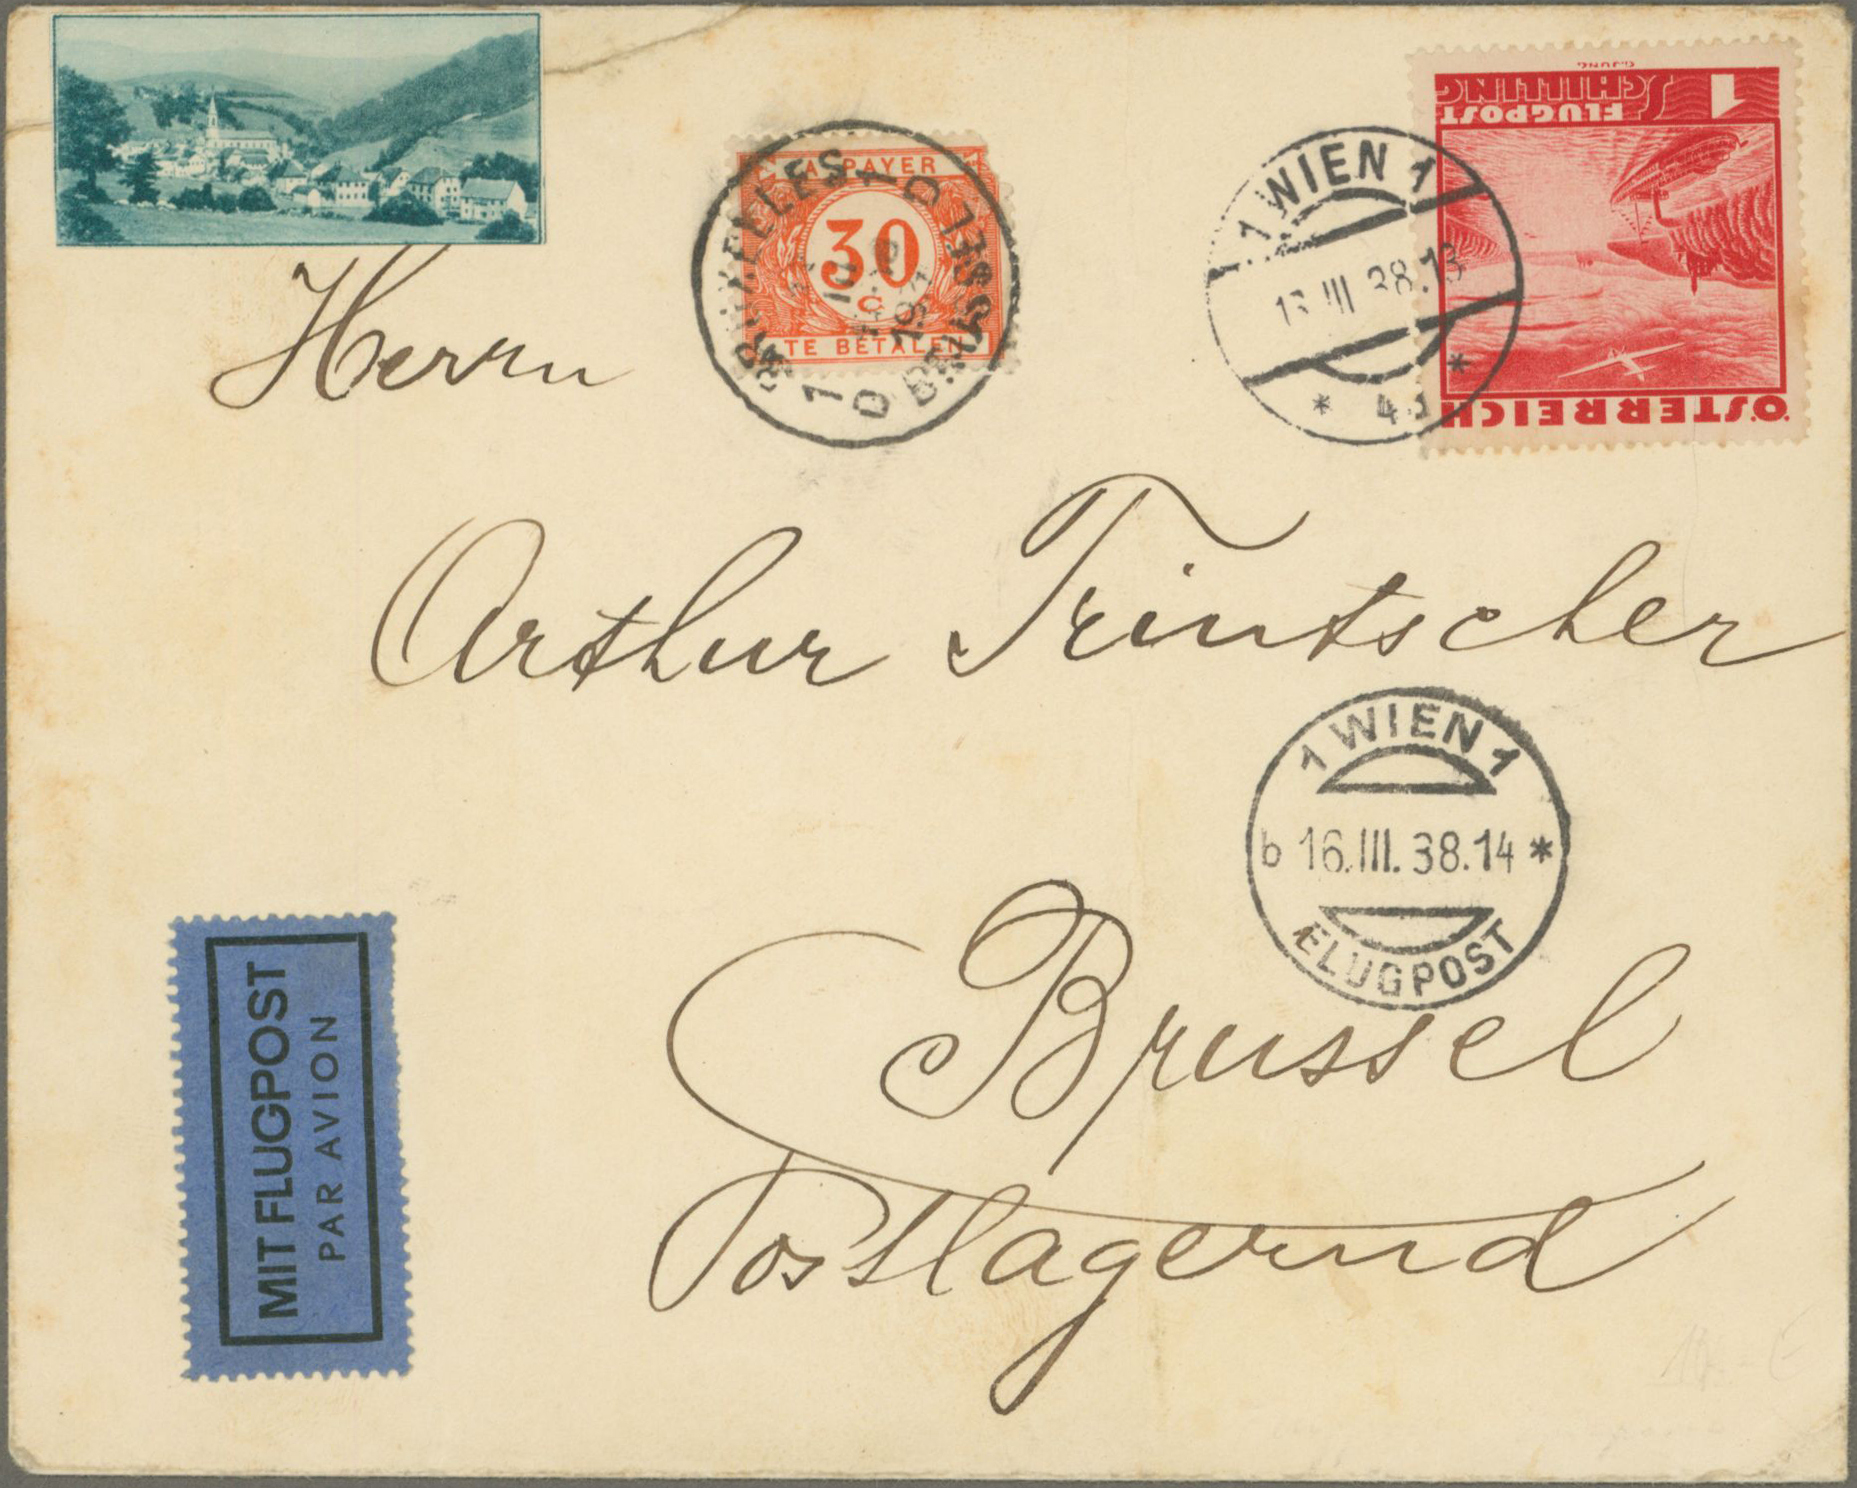 TAXE A PAYER
30
c
TE BETALEN
BRUXELLES 1 D
BRUSSEL 1 D
1 WIEN 1
13 III 38.13
* 4d *
G. JUNG
1 SCHILLING
FLUGPOST
ÖSTERREICH
Herrn
Arthur Trintscher
1 WIEN 1
b 16.III.38.14 *
FLUGPOST
Brussel
Postlagernd
MIT FLUGPOST
PAR AVION